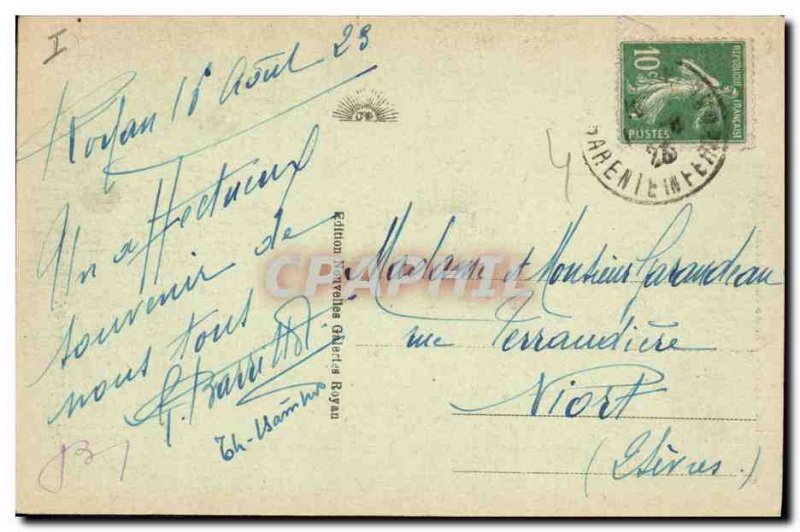 I
Royan 18 Août 23
Un affectueux
souvenir de
nous tous
G. Barrittot
B
Edition Nouvelles Galeries Royan
NG
4
10c
REPUBLIQUE FRANÇAISE
POSTES
23
CHARENTE INFERE
CPAPHIL
Madame et Monsieur Garandeau
rue Terraudière
Niort
(2 Sèvres)